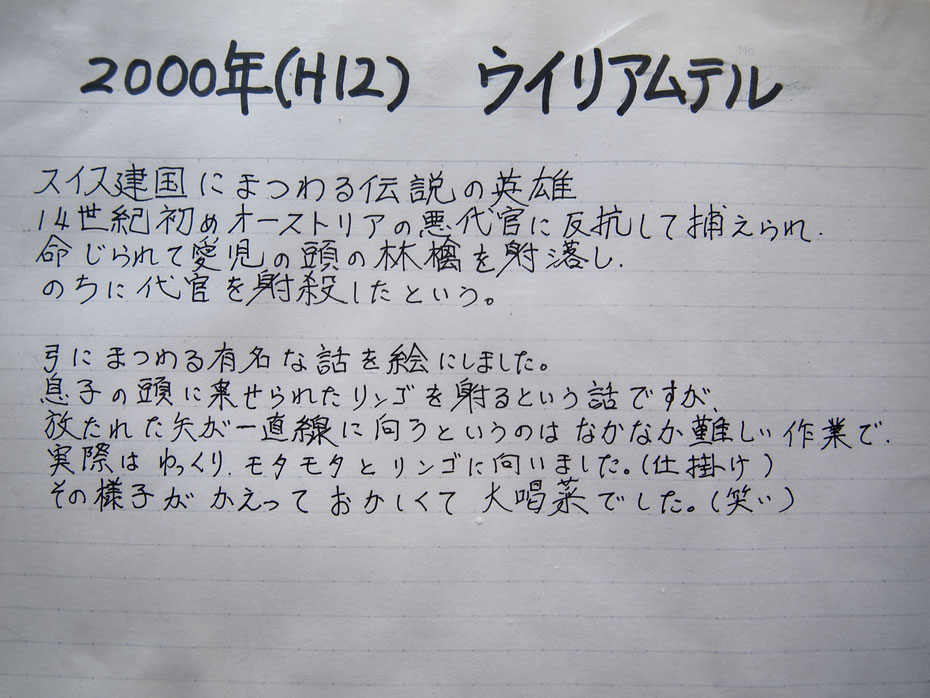 2000年(H12) ウイリアムテル
スイス建国にまつわる伝説の英雄
14世紀初めオーストリアの悪代官に反抗して捕えられ.
命じられて愛児の頭の林檎を射落し.
のちに代官を射殺したという。
弓にまつわる有名な話を絵にしました。
息子の頭に乗せられたリンゴを射るという話ですが、
放たれた矢が一直線に向うというのはなかなか難しい作業で.
実際はゆっくり.モタモタとリンゴに向いました。(仕掛け)
その様子がかえっておかしくて大喝菜でした。(笑い)